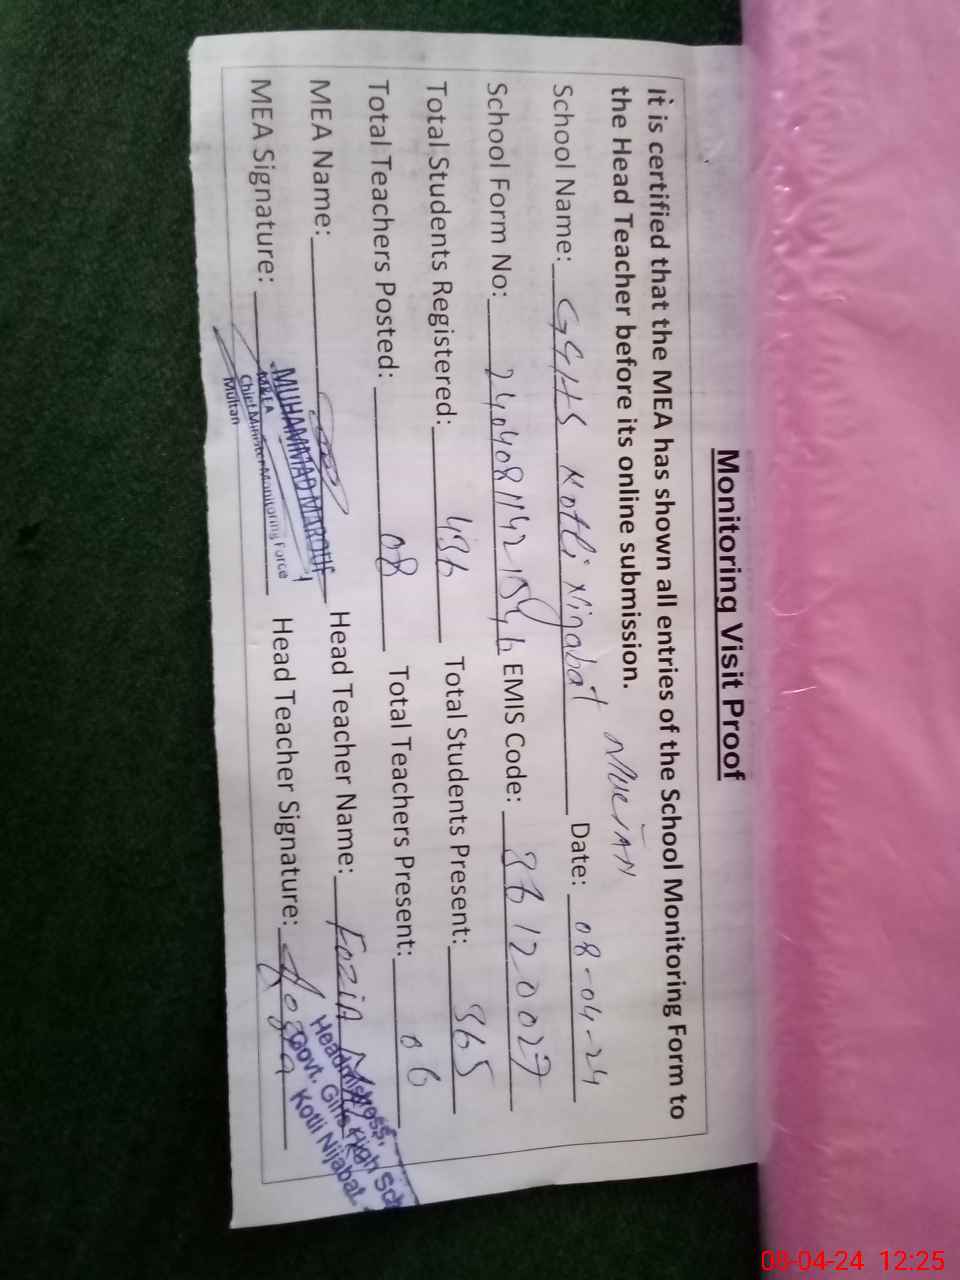 Monitoring Visit Proof
It is certified that the MEA has shown all entries of the School Monitoring Form to
the Head Teacher before its online submission.
MULTAN
School Name: GGHS Kotli Nijabat Date: 08-04-24
School Form No: EMIS Code: 36120027
Total Students Registered: 436 Total Students Present: 365
Total Teachers Posted: 08 Total Teachers Present: 06
MEA Name: Head Teacher Name: FOZIA
MEA Signature: Head Teacher Signature: Fozia
MUHAMMAD MAROUF
MEA
Chief Minister Monitoring Force
Multan
Headmistress,
Govt. Girls High Sch
Kotli Nijabat
08-04-24 12:25